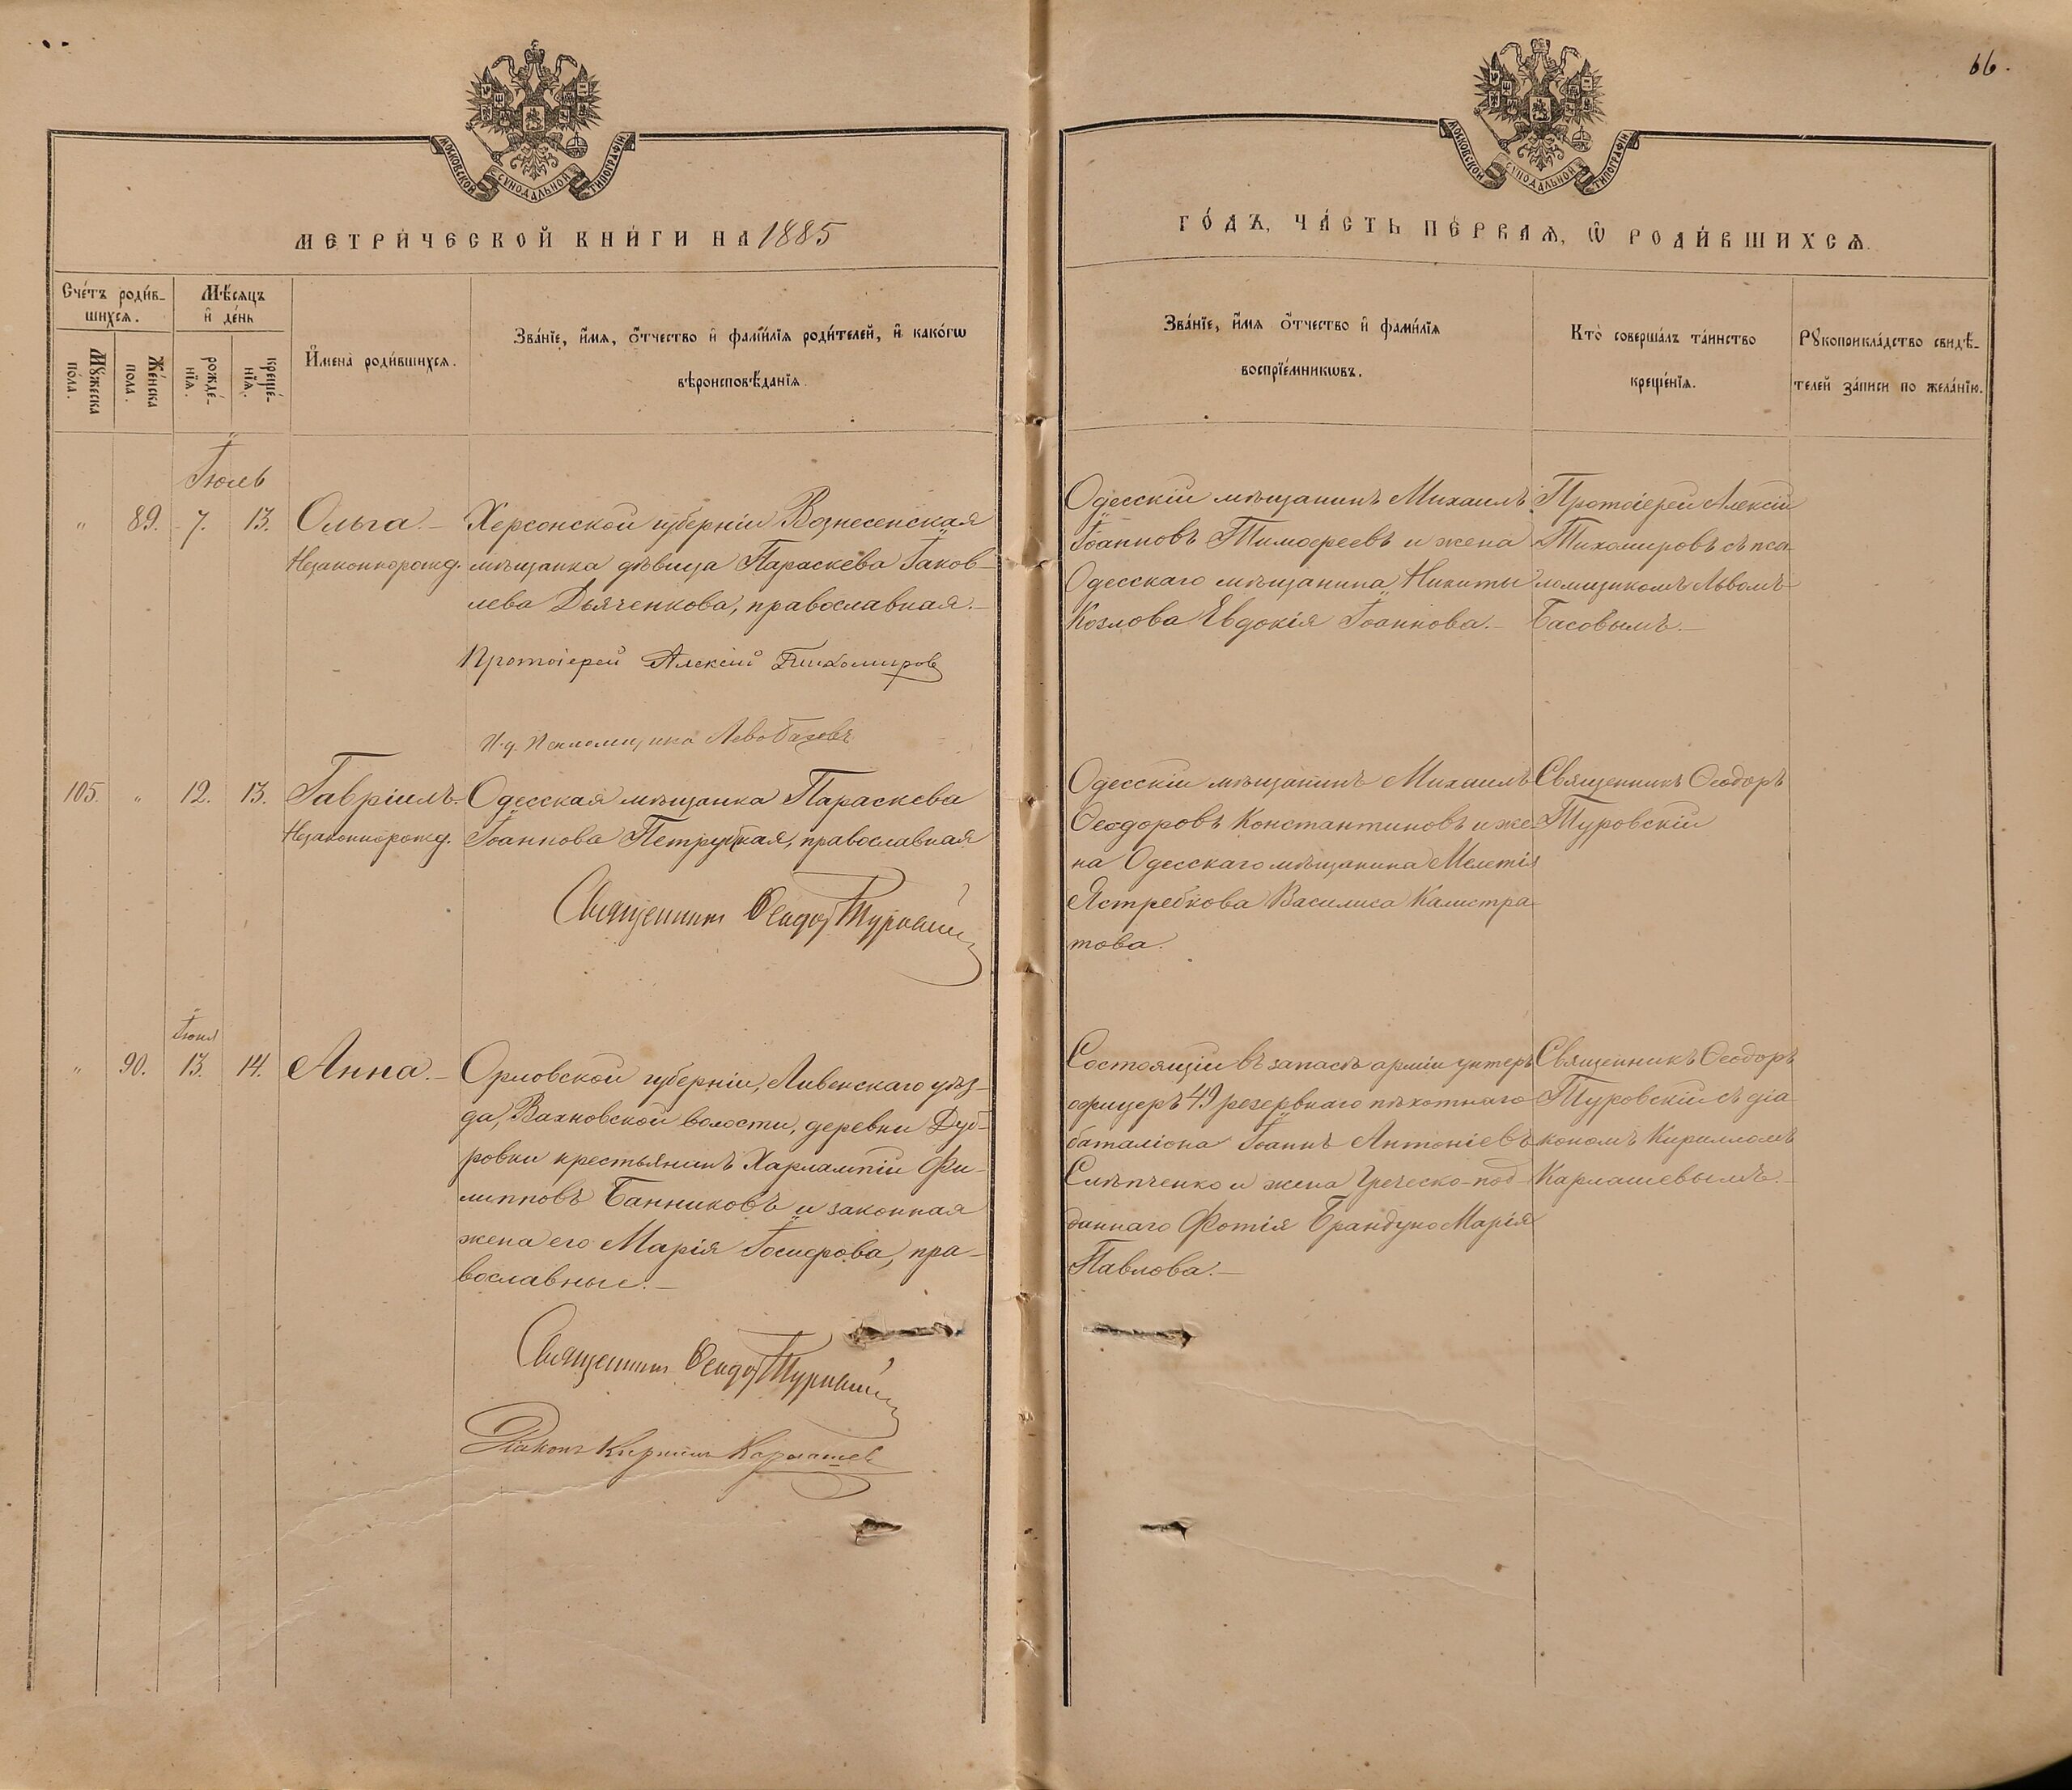 66.
МОСКОВСКОЙ СУНОДАЛЬНОЙ ТИПОГРАФІИ
МОСКОВСКОЙ СУНОДАЛЬНОЙ ТИПОГРАФІИ
МЕТРИ́ЧЕСКОЙ КНИ́ГИ НА 1885
ГО́ДЪ, ЧА́СТЬ ПЕ́РВАѦ, Ѿ РОДИ́ВШИХСѦ.
Сче́тъ роди́в-
шихсѧ.
Мѣ́сѧцъ
и҆ де́нь
Мꙋ́жеска
по́ла.
Же́нска
по́ла.
рожде́-
нїѧ.
креще́-
нїѧ.
И҆мена̀ роди́вшихсѧ.
Зва́нїе, и҆́мѧ, ѻ҆́тчество и҆ фами́лїѧ роди́телей, и҆ како́гѡ
вѣроисповѣ́данїѧ.
Зва́нїе, и҆́мѧ ѻ҆́тчество и҆ фами́лїѧ
воспрїе́мникѡвъ.
Кто̀ соверша́лъ та́инство
креще́нїѧ.
Рꙋкоприкла́дство свидѣ́-
телей за́писи по жела́нїю.
Іюль
„ 89. 7. 13. Ольга.-
Незаконнорожд.
Херсонской губерніи Вознесенская
мѣщанка дѣвица Параскева Іаков-
лева Дьяченкова, православная.-
Протоіерей Алексій Тихомиров
И.д. Псаломщика Лев Басовъ
Одесскій мѣщанинъ Михаилъ
Іоанновъ Тимоѳеевъ и жена
Одесскаго мѣщанина Никиты
Козлова Евдокія Іоаннова.-
Протоіерей Алексій
Тихомировъ съ пса-
ломщикомъ Львомъ
Басовымъ.-
105. „ 12. 13. Гавріилъ.
Незаконнорожд.
Одесская мѣщанка Параскева
Іоаннова Петруцкая, православная
Священникъ Ѳеодор Туровскій
Одесскій мѣщанинъ Михаилъ
Ѳеодоровъ Константиновъ и же-
на Одесскаго мѣщанина Мелетія
Ястребкова Василиса Калистра-
това.
Священникъ Ѳеодоръ
Туровскій
„ 90. 13. 14. Анна.-
Орловской губерніи, Ливенскаго уѣз-
да, Вахновской волости, деревни Дуб-
ровки крестьянинъ Харлампій Фи-
липповъ Банниковъ и законная
жена его Марія Іосифова, пра-
вославные.-
Священникъ Ѳеодор Туровскій
Діаконъ Кириллъ Карпашев
Состоящій въ запасѣ арміи унтеръ
офицеръ 49 резервнаго пѣхотнаго
баталіона Іоаннъ Антоніевъ
Слѣпченко и жена Греческо-под-
даннаго Фотія Брандуко Марія
Павлова.-
Священникъ Ѳеодоръ
Туровскій съ діа-
кономъ Кирилломъ
Карпашевымъ.-